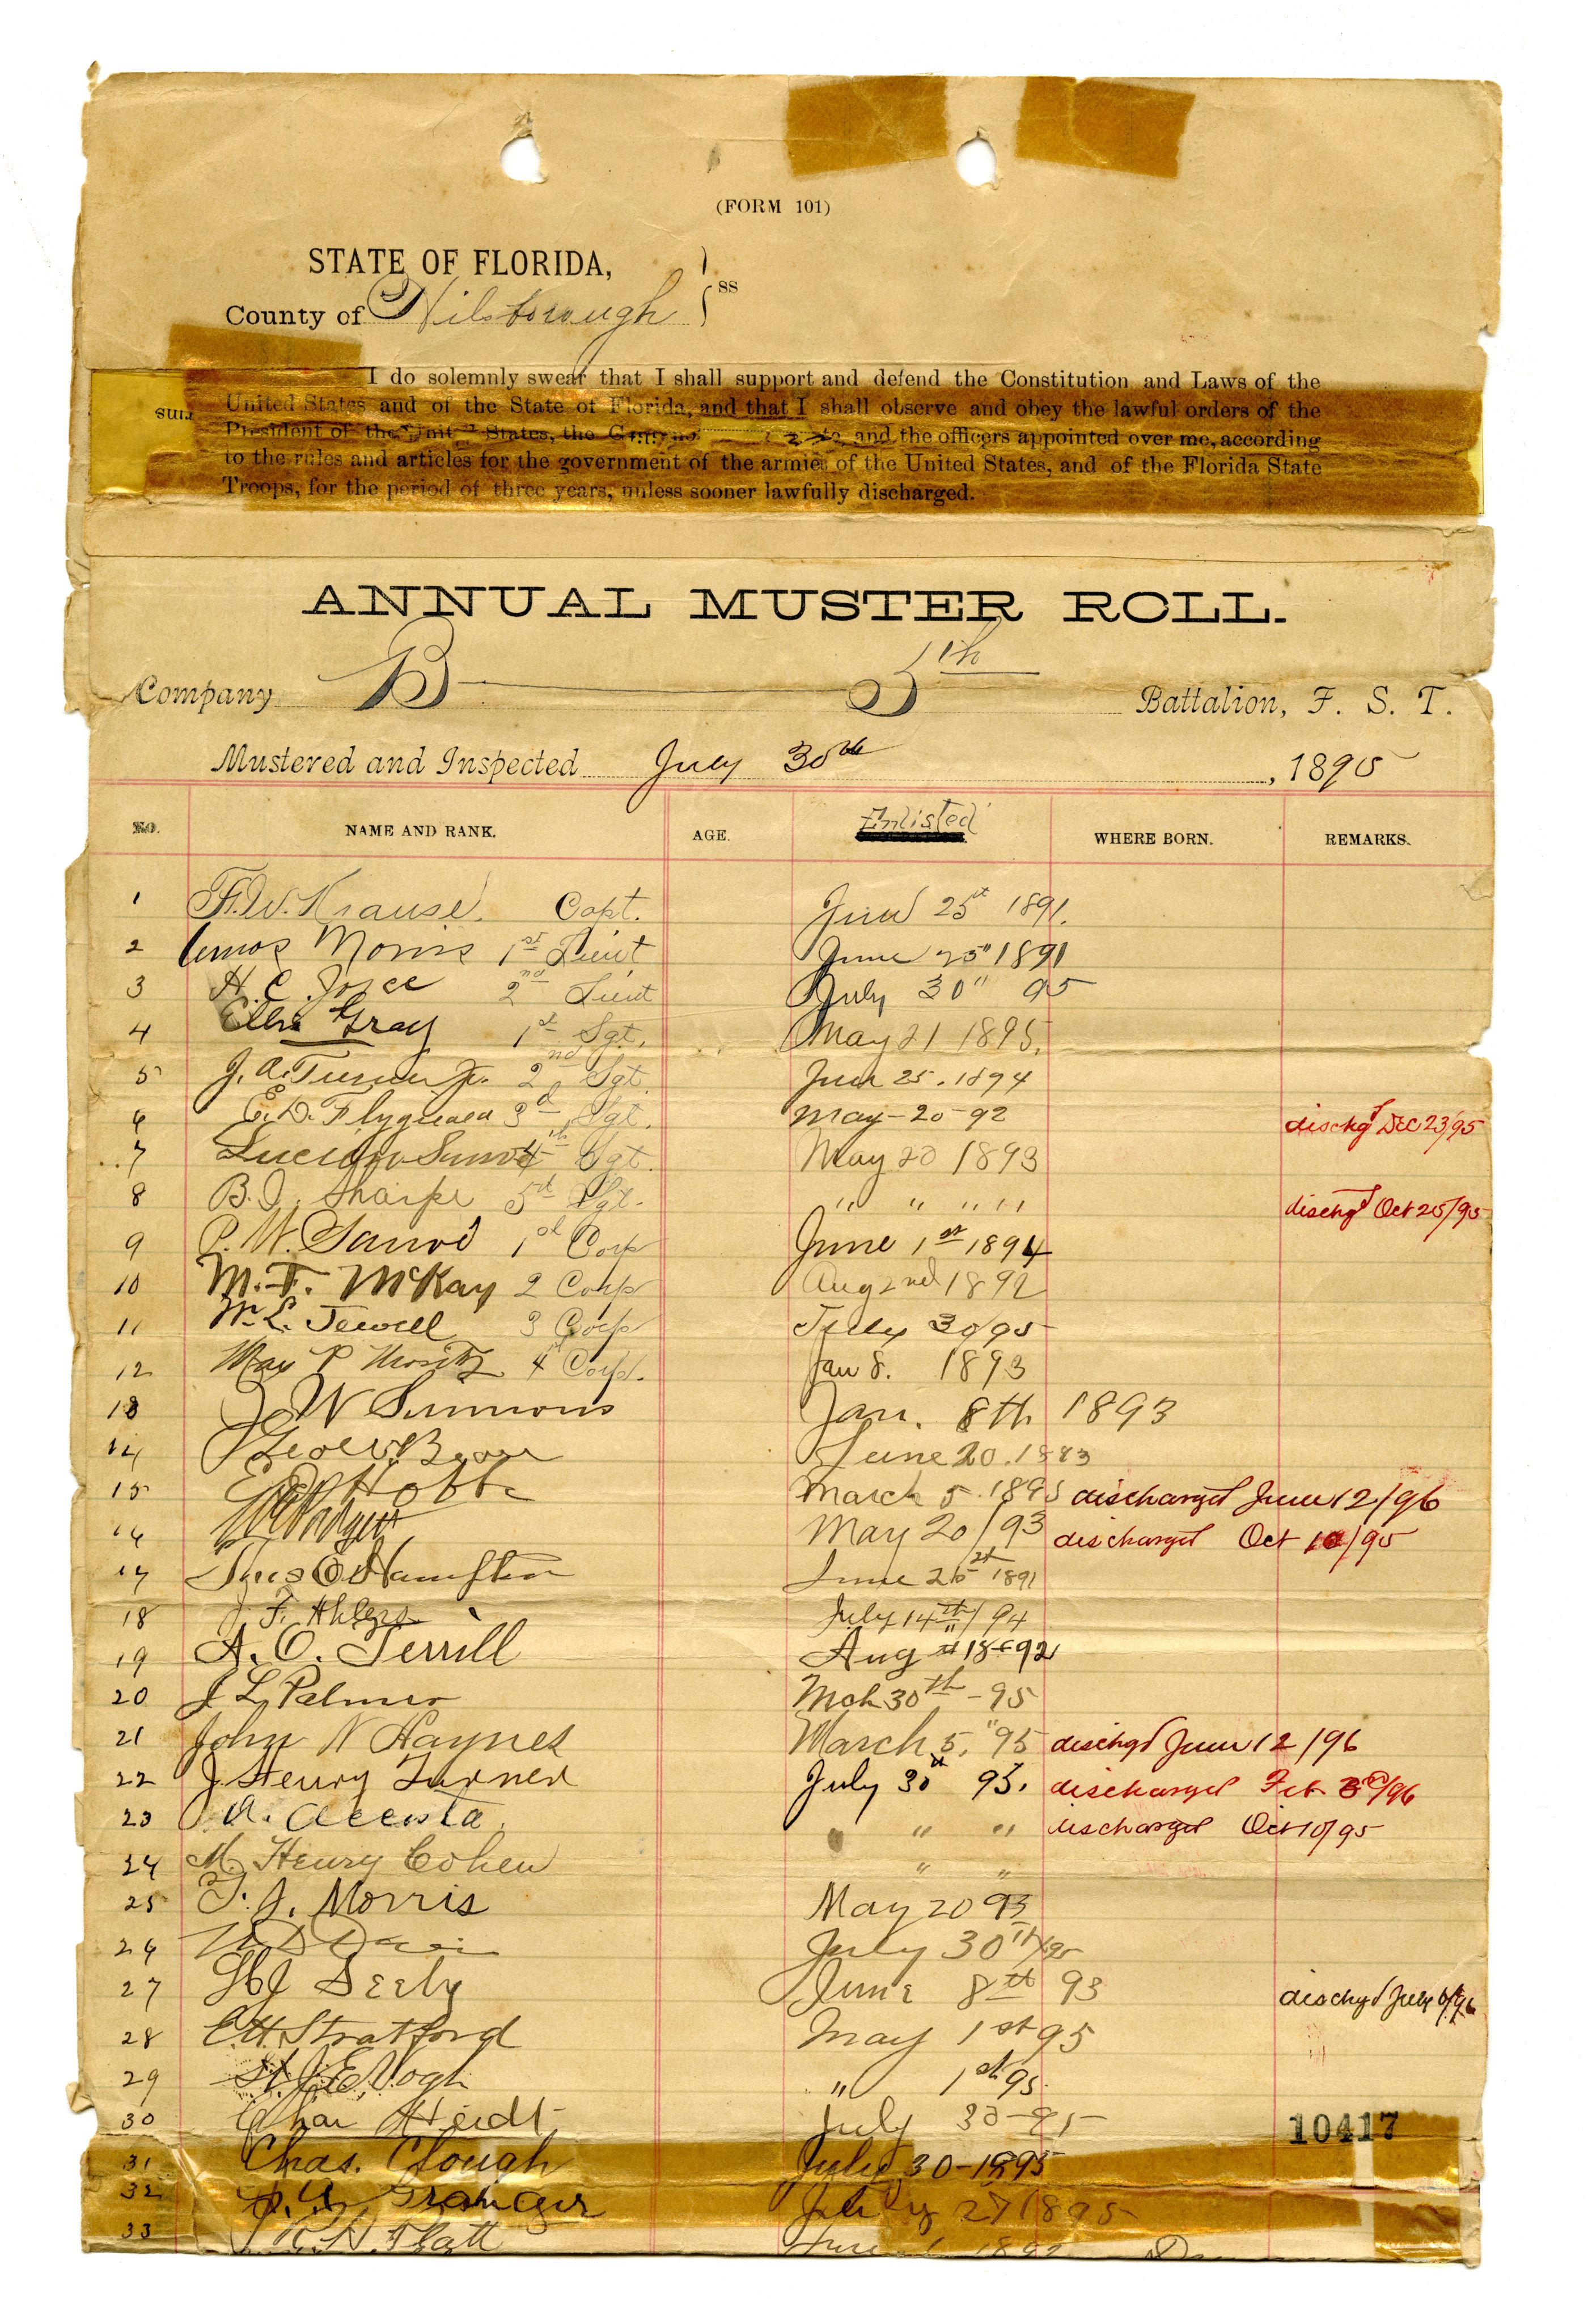 (FORM 101)
STATE OF FLORIDA,
County of Hilsborough ss
I do solemnly swear that I shall support and defend the Constitution and Laws of the
United States and of the State of Florida, and that I shall observe and obey the lawful orders of the
President of the United States, the and the officers appointed over me, according
to the rules and articles for the government of the armies of the United States, and of the Florida State
Troops, for the period of three years, unless sooner lawfully discharged.
ANNUAL MUSTER ROLL.
Company B 5th Battalion, F. S. T.
Mustered and Inspected July 30th, 1895
NO. NAME AND RANK. AGE. Enlisted WHERE BORN. REMARKS.
1 F. W. Krause. Capt. June 25st 1891.
2 Amos Morris 1st Lieut June 25" 1891
3 H. C. 2nd Lieut July 30" 95
4 Gray 1st Sgt. May 21 1895.
5 J. A. Turner Jr. 2nd Sgt. June 25. 1894
6 E. D. 3d Sgt. May-20-92 dischgd Dec 23/95
7 4th Sgt. May 20 1893
8 B. J. Sharpe 5d Sgt. " " " " dischgd Oct 25/95
9 P. W. 1st Corp June 1st 1894
10 M. F. McKay 2 Corp Aug 2nd 1892
11 W. L. Jewell 3 Corp July 30/95
12 Max P 4 Corp. Jan 8. 1893
13 J W Simmons Jan. 8th 1893
14 June 20. 1893
15 Hobbs March 5. 1895 discharged June 12/96
16 May 20/93 discharged Oct 10/95
17 Hampton June 25st 1891
18 J. F. Ahlers July 14th/94
19 A. O. Terrill Aug 18-92
20 J L Palmer Mch 30th-95
21 John N Haynes March 5. "95 dischgd June 12/96
22 J. Henry Turner July 30th 95. discharged Feb /96
23 A. Acosta. " " discharged Oct 10/95
24 M. Henry Cohen " "
25 T. J. Morris May 20 93
26 July 30th/95
27 Seely June 8th 93 dischgd July 6/96
28 C. H. Stratford May 1st 95
29 J. E. Vogh " 1st 95.
30 Heidt July 30-95
10417
31 Chas. Clough July 30-1895
32 Granger July 27 1895
33 Platt